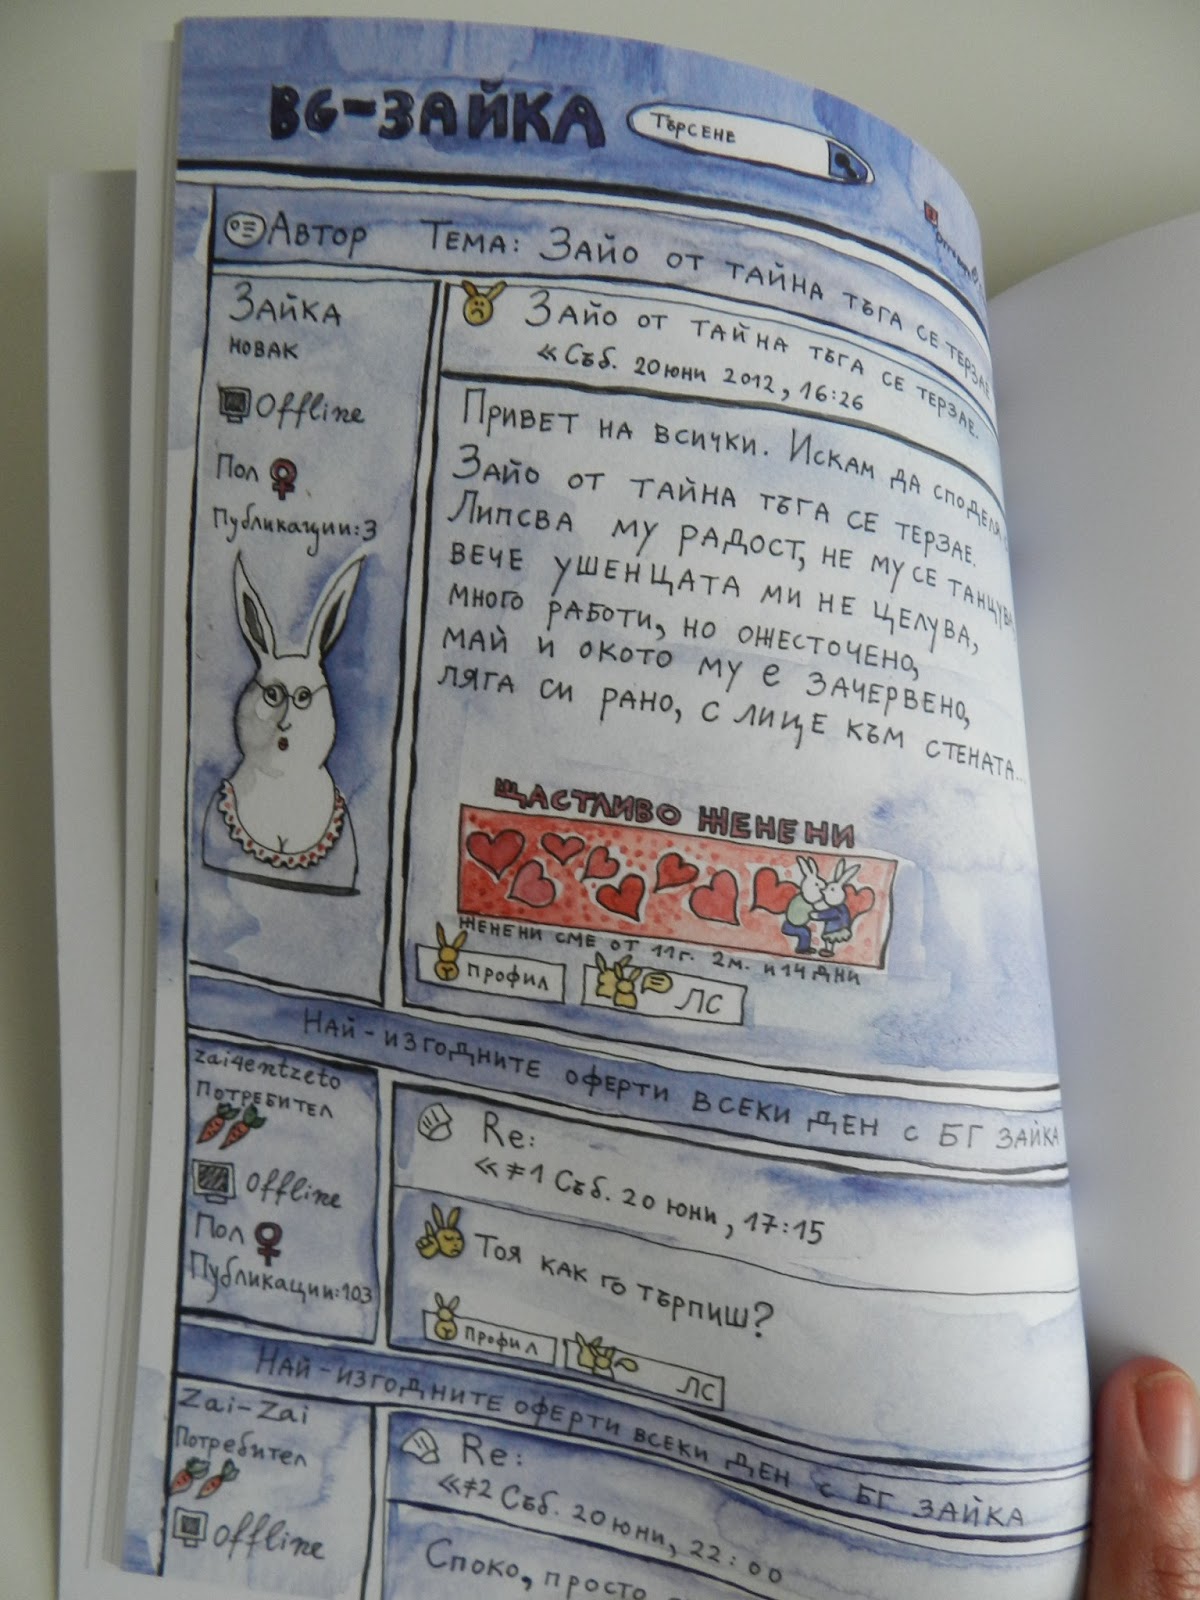 BG-ЗАЙКА
ТЪРСЕНЕ
АВТОР
ТЕМА: ЗАЙО ОТ ТАЙНА ТЪГА СЕ ТЕРЗАЕ
ЗАЙКА
НОВАК
Offline
Пол
Публикации:3
ЗАЙО ОТ ТАЙНА ТЪГА СЕ ТЕРЗАЕ.
«Съб. 20 юни 2012, 16:26
ПРИВЕТ НА ВСИЧКИ. ИСКАМ ДА СПОДЕЛЯ
ЗАЙО ОТ ТАЙНА ТЪГА СЕ ТЕРЗАЕ.
ЛИПСВА МУ РАДОСТ, НЕ МУ СЕ ТАНЦУВА,
ВЕЧЕ УШЕНЦАТА МИ НЕ ЦЕЛУВА,
МНОГО РАБОТИ, НО ОЖЕСТОЧЕНО,
МАЙ И ОКОТО МУ Е ЗАЧЕРВЕНО,
ЛЯГА СИ РАНО, С ЛИЦЕ КЪМ СТЕНАТА...
ЩАСТЛИВО ЖЕНЕНИ
ЖЕНЕНИ СМЕ ОТ 11г. 2м. и 14 ДНИ
ПРОФИЛ
ЛС
НАЙ-ИЗГОДНИТЕ ОФЕРТИ ВСЕКИ ДЕН С БГ ЗАЙКА
zai4entzeto
ПОТРЕБИТЕЛ
offline
Пол
Публикации:103
Re:
«≠1 Съб. 20 юни, 17:15
ТОЯ КАК ГО ТЪРПИШ?
ПРОФИЛ
ЛС
НАЙ-ИЗГОДНИТЕ ОФЕРТИ ВСЕКИ ДЕН С БГ ЗАЙКА
Zai-Zai
Потребител
offline
Re:
«≠2 Съб. 20 юни, 22:00
СПОКО, ПРОСТО